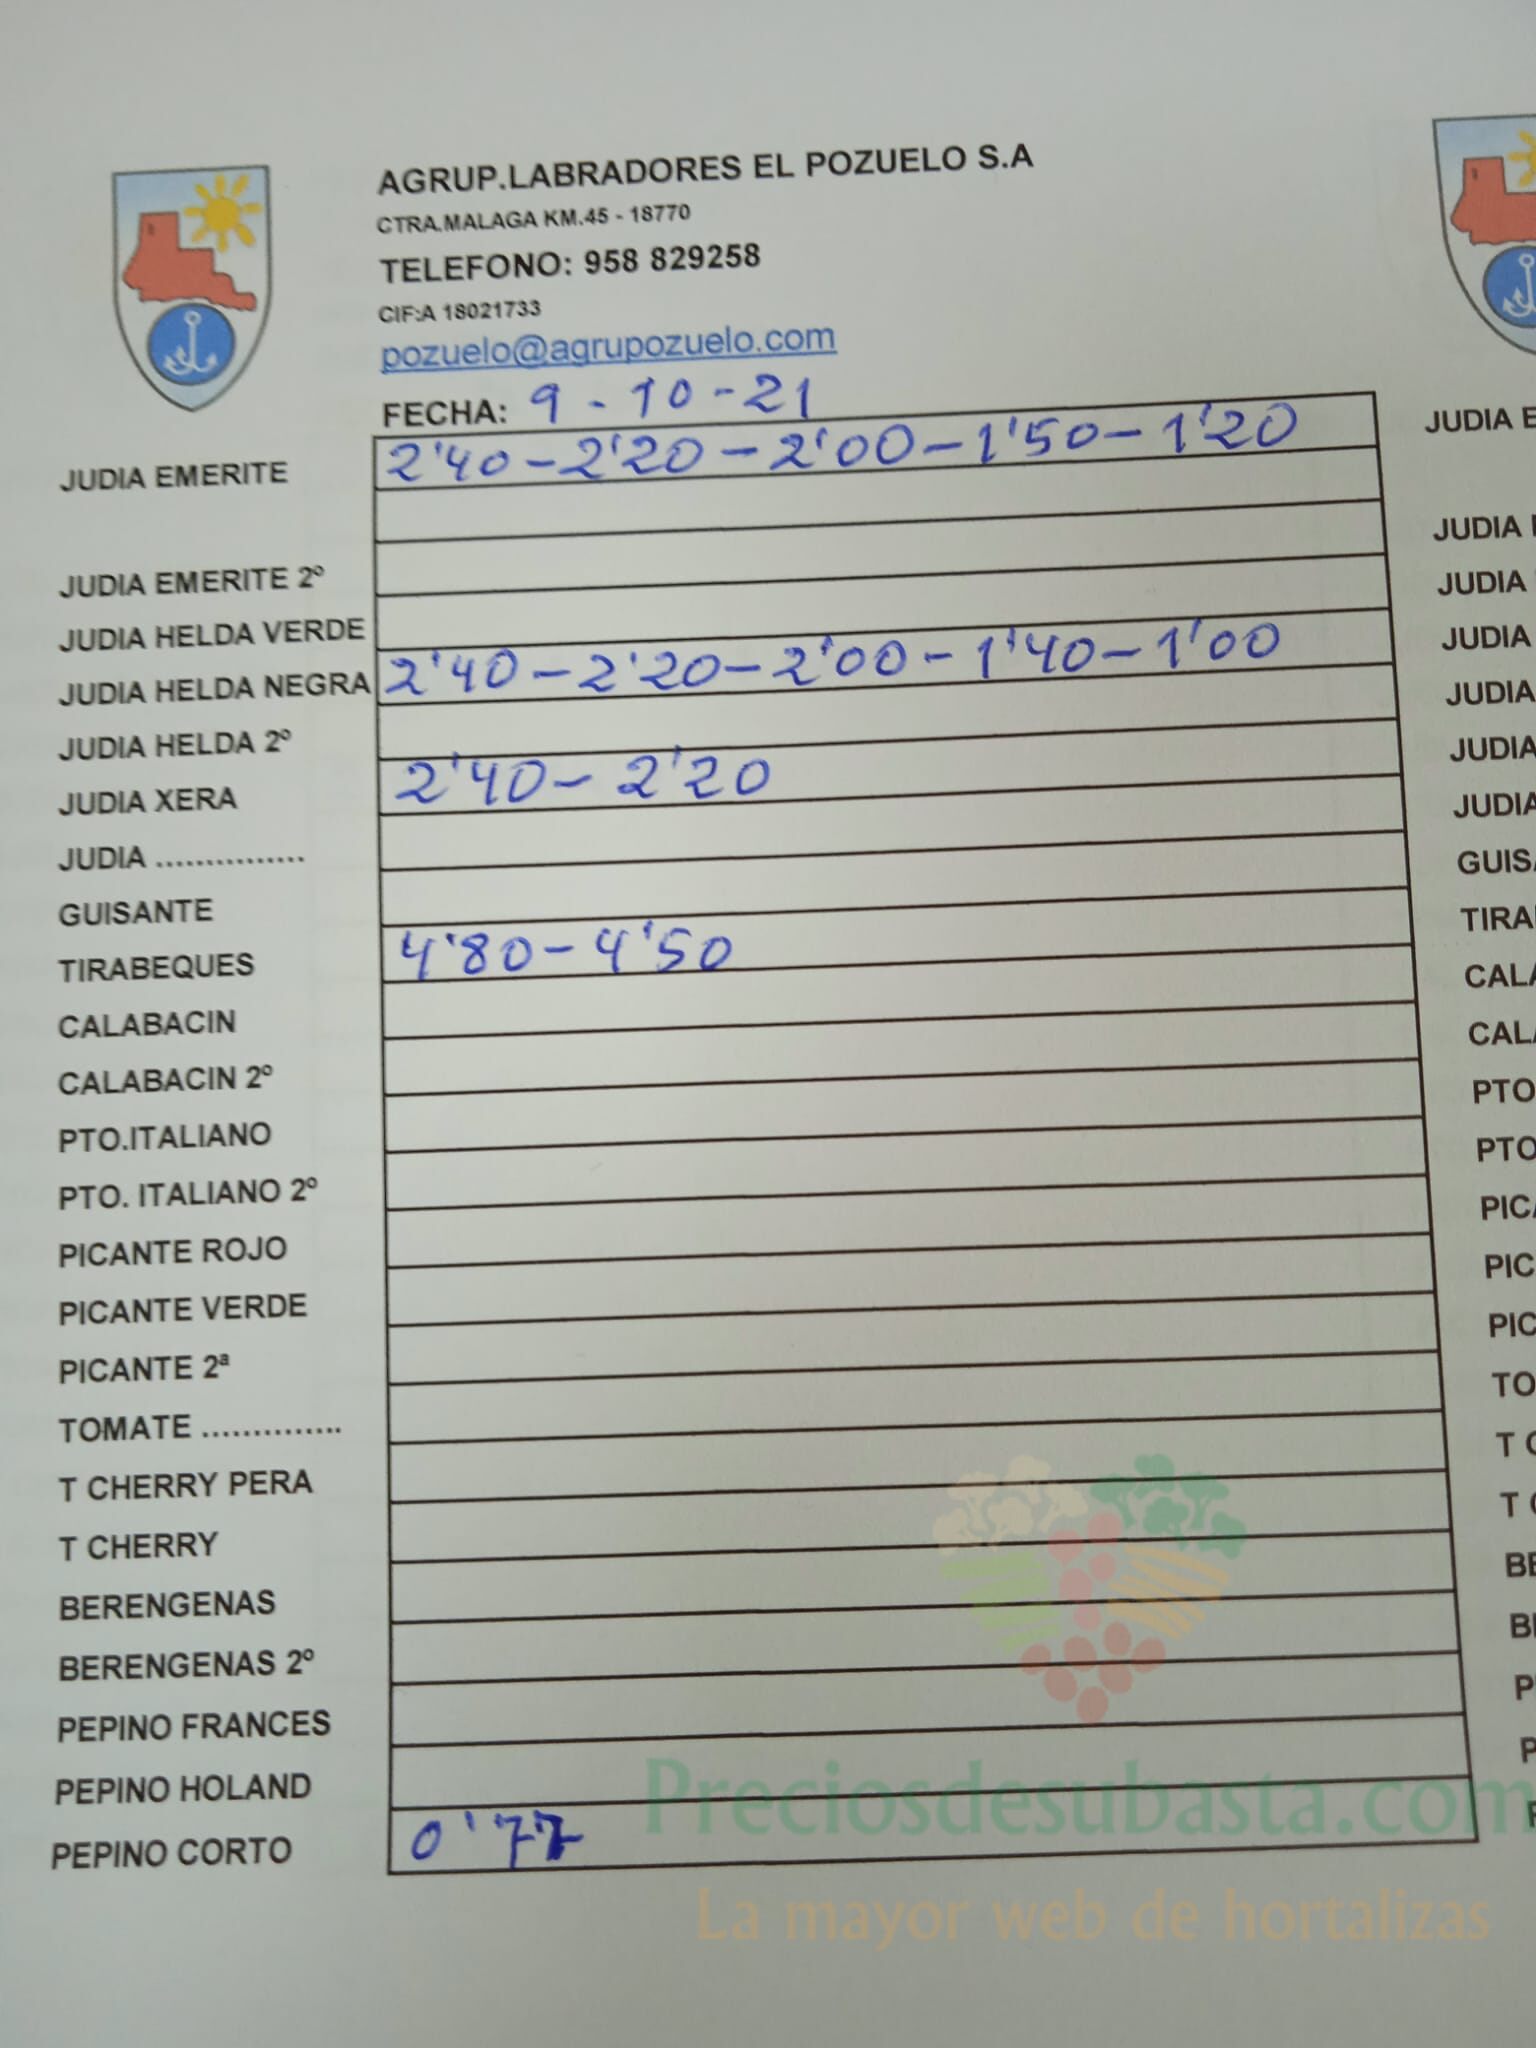 AGRUP.LABRADORES EL POZUELO S.A
CTRA.MALAGA KM.45 - 18770
TELEFONO: 958 829258
CIF:A 18021733
pozuelo@agrupozuelo.com
FECHA: 9-10-21
JUDIA EMERITE 2'40-2'20-2'00-1'50-1'20
JUDIA EMERITE 2º
JUDIA HELDA VERDE
JUDIA HELDA NEGRA 2'40-2'20-2'00-1'40-1'00
JUDIA HELDA 2º
JUDIA XERA 2'40-2'20
JUDIA ...............
GUISANTE
TIRABEQUES 4'80-4'50
CALABACIN
CALABACIN 2º
PTO.ITALIANO
PTO. ITALIANO 2º
PICANTE ROJO
PICANTE VERDE
PICANTE 2ª
TOMATE ..............
T CHERRY PERA
T CHERRY
BERENGENAS
BERENGENAS 2º
PEPINO FRANCES
PEPINO HOLAND
PEPINO CORTO 0'77
Preciosdesubasta.com
La mayor web de hortalizas
JUDIA E
JUDIA
JUDIA
JUDIA
JUDIA
JUDIA
JUDIA
GUISA
TIRA
CALA
CALA
PTO
PTO
PICA
PIC
PIC
TO
T C
T
BE